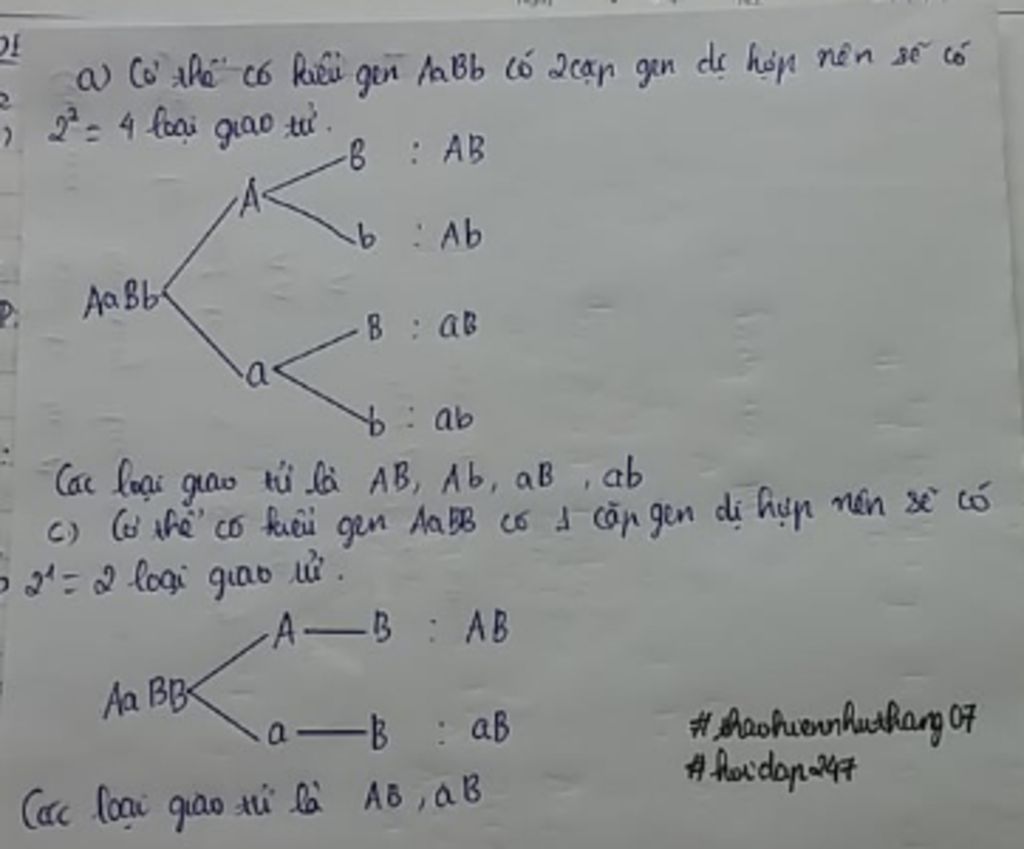 a) Cơ thể có kiểu gen AaBb có 2 cặp gen dị hợp nên sẽ có
2² = 4 loại giao tử.
B : AB
A
b : Ab
AaBb
B : aB
a
b : ab
Các loại giao tử là AB, Ab, aB, ab
c) Cơ thể có kiểu gen AaBB có 1 cặp gen dị hợp nên sẽ có
2¹ = 2 loại giao tử.
A — B : AB
AaBB
a — B : aB
#hoidap247
Các loại giao tử là AB, aB